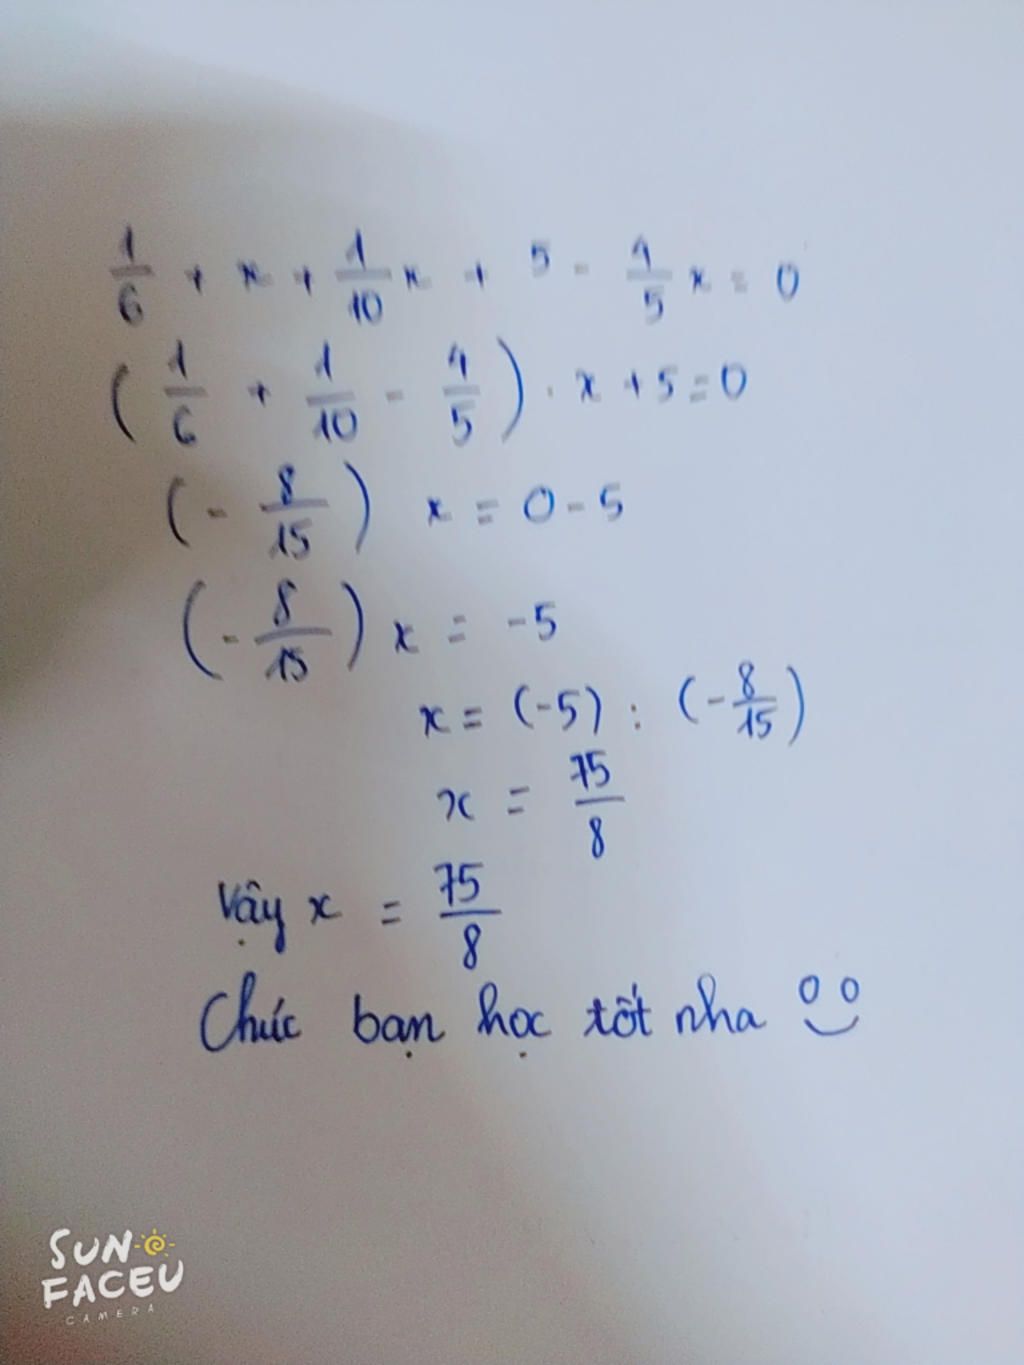 1/6 + x + 1/10 x + 5 - 4/5 x = 0
(1/6 + 1/10 - 4/5) . x + 5 = 0
(- 8/15) x = 0 - 5
(- 8/15) x = -5
x = (-5) : (- 8/15)
x = 75/8
Vậy x = 75/8
Chúc bạn học tốt nha
SUN
FACEU
CAMERA